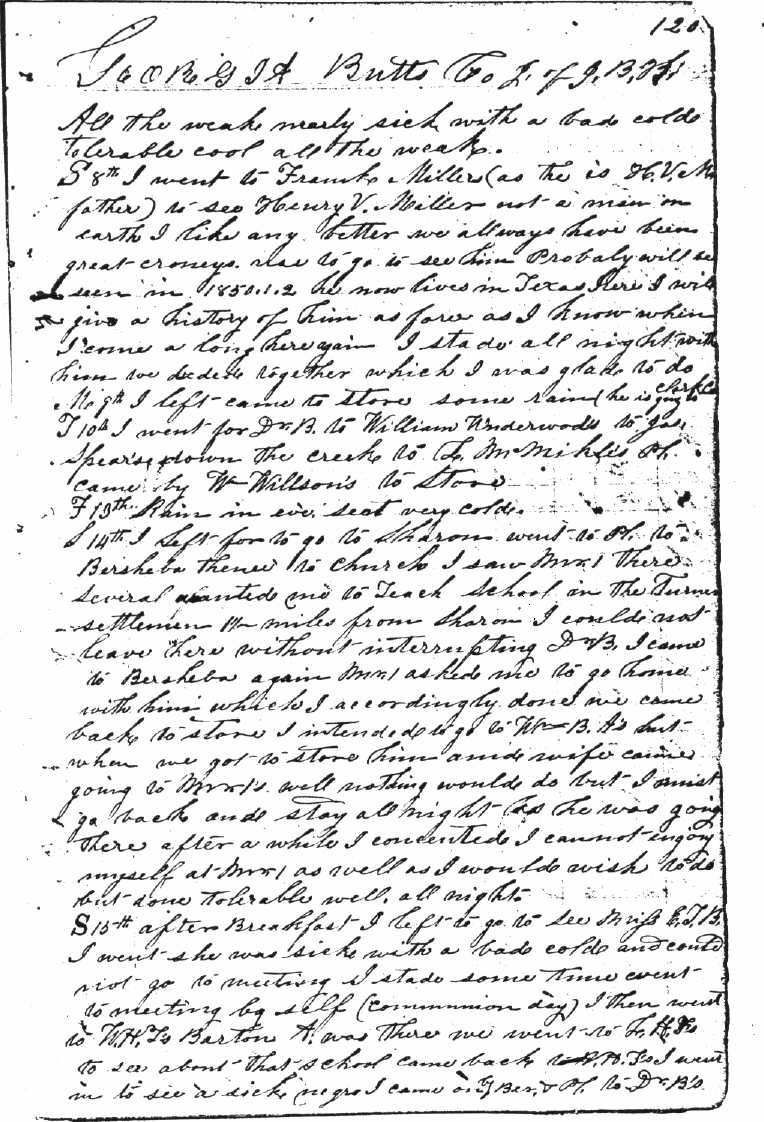 120
GEORGIA Butts Co J. of J. B.
All the weak nearly sick with a bad colde
tolerable cool all the weak.
S 8th I went to Frank Millers (as the is H. V. Ms
father) to see Henry V. Miller not a man on
earth I like any better we allways have been
great croneys. use to go to see him Probaly will be
seen in 1850.1.2 he now lives in Texas Here I will
give a history of him as fare as I know when
I come a long here again I stade all night with
him we together which I was glad to do
M 9th I left came to store some rain (he is going to
Clark Co
T 10th I went for Dr. B. to William Underwoods to Jas,
Spear's, down the creek to L. McMikles Pl.
came by Wm Willson's to Store
F 13th Rain in eve. seat very colde.
S 14th I left for to go to Sharon went to Pl. to
Bersheba thence to church I saw there
several wanted me to Teach School in the Turner
settlemen miles from Sharon I coulde not
leave here without interrupting Dr B. I came
to Bersheba again asked me to go home
with him which I accordingly done we came
back to store I intended to go to Wm B. A's but
when we got to store him ande wife came
going to well nothing woulde do but I must
go back ande stay all night as he was going
there after a while I concented I cannot engoy
myself at as well as I woulde wish to do
but done tolerable well. all night.
S 15th after Breakfast I left to go to see Miss E. T. B.
I went she was sick with a bade colde and could
not go to meeting I stade some time went
to meeting by self (communion day) I then went
to W. H. Fs Barton A. was there we went to L. H. Fs
to see about that school came back to H. Fs I went
in to see a sick negro I came by Ber. & Pl. to Dr. B's